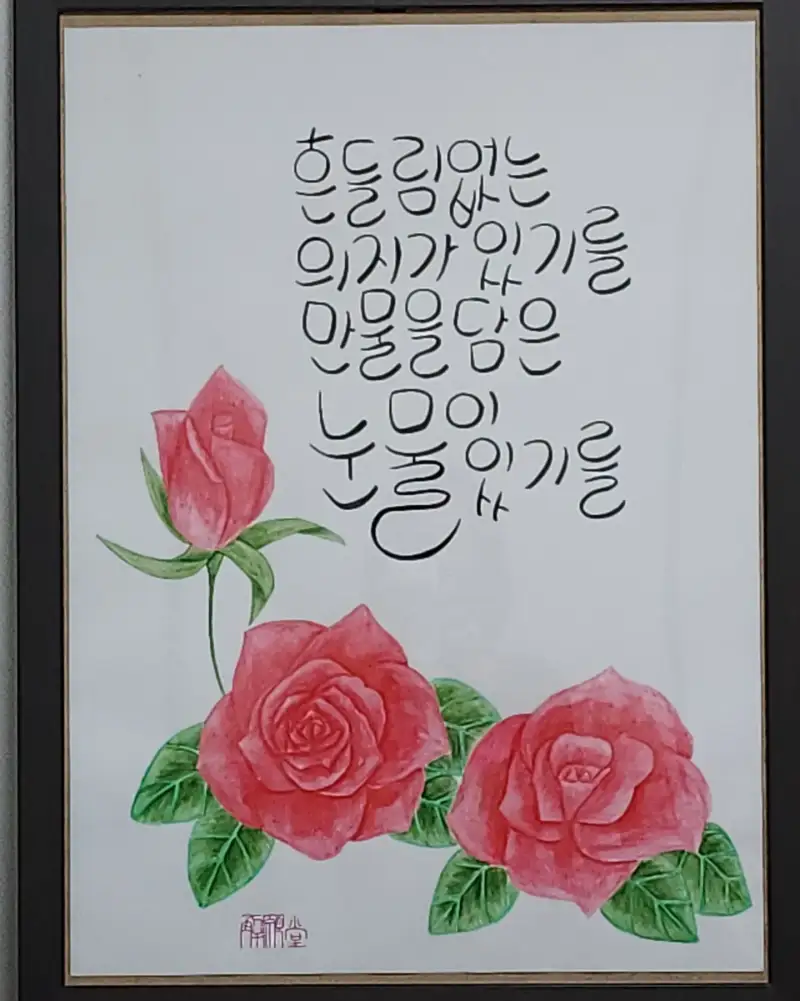 흔들림없는
의지가 있기를
만물을 담은
눈물이
있기를